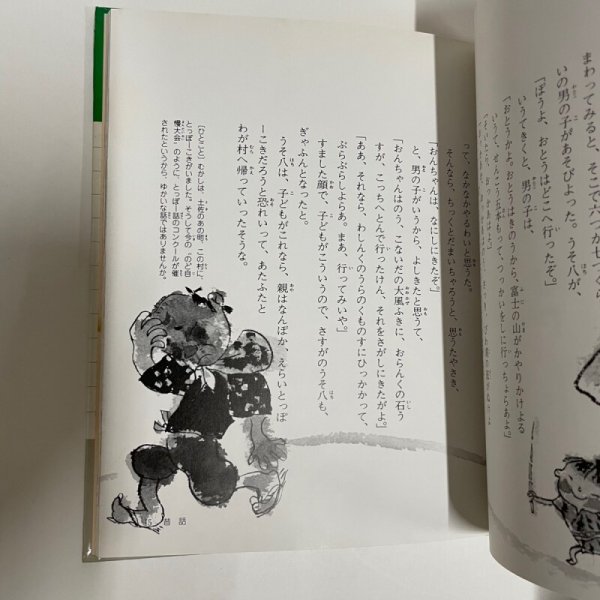 まわってみると、そこで六つか七つ
いの男の子があそびよった。うそ八が、
「ぼうよ、おとうはどこへ行ったぞ。」
いうてきくと、男の子は、
「おとうかよ。おとうはきのうから、富士の山がかやりかけよる
いうて、せんこう五本もって、つっかいをしに行っちょらあよ。」
って、なかなかやるわいと思うた。
そんなら、ちっくとだまいちゃろうと、思うたやさき、
「おんちゃんは、なにしにきたぞ。」
と、男の子がいうから、よしきたと思うて、
「おんちゃんはのう、こないだの大風ふきに、おらんくの石う
すが、こっちへとんで行ったけん、それをさがしにきたがよ。」
「ああ、それなら、わしんくのうらのくものすにひっかかって、
ぶらぶらしよらあ。まあ、行ってみいや。」
すました顔で、子どもがこういうので、さすがのうそ八も、
ぎゃふんとなったと。
うそ八は、子どもがこれなら、親はなんぼか、えらいとっぽ
ーこきだろうと恐れいって、あたふたと
わが村へ帰っていったそうな。
〔ひとこと〕むかしは、土佐のあの町、この村に、
とっぽーこきがいました。そうして今の〝のど自
慢大会〟のように、とっぽー話のコンクールが催
されたというから、ゆかいな話ではありませんか。
昔話